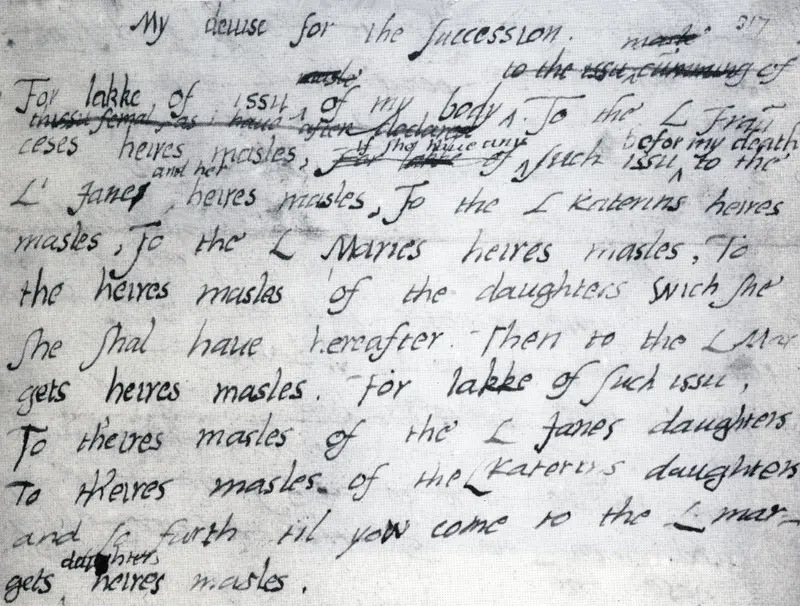 My deuise for the succession. 317
masle
masle to the issu cumming of
For lakke of issu of my body. To the L Frau
thissu femal, as i haue after declared
ceses heires masles, For lakke of if she haue any such issu before my death to the
L' Janes and her heires masles, To the L Katerins heires
masles, To the L Maries heires masles, To
the heires masles of the daughters wich she
she shal haue hereafter. Then to the L Mar
gets heires masles. For lakke of such issu,
To theires masles of the L Janes daughters
To theires masles of the L Katerins daughters
and so furth til yow come to the L mar-
daughters
gets heires masles.